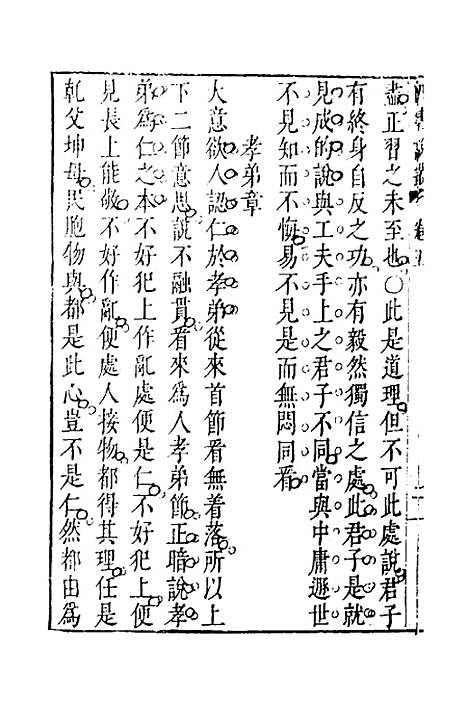 盡正習之未至也〇此是道理但不可此處說君子
有終身自反之功亦有毅然獨信之處此君子是就
見成的說與工夫手上之君子不同當與中庸遯世
不見知而不悔易不見是而無悶同看
孝弟章
大意欲人認仁於孝弟從來首節看無着落所以上
下二節意思說不融貫看來為人孝弟節正暗說孝
弟為仁之本不好犯上作亂處便是仁不好犯上便
見長上能敬不好作亂便處人接物都得其理任是
乹父坤母民胞物與都是此心豈不是仁然都由為